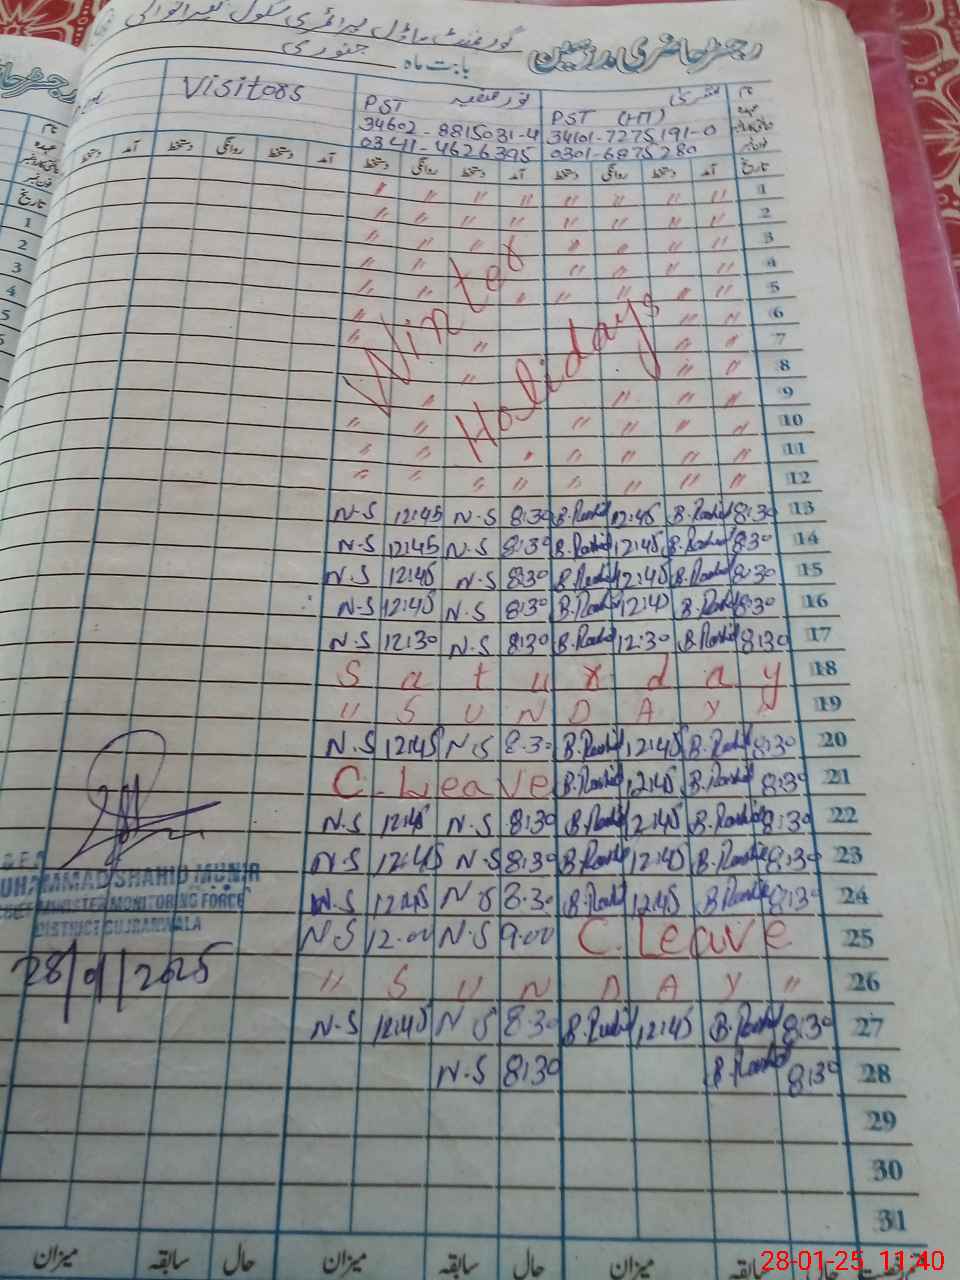 گورنمنٹ ماڈل پرائمری سکول
رجسٹر حاضری مدرسین
بابت ماہ جنوری
Visitors
PST نور صفیہ
34602-8815031-4
0341-4626395
PST (HT) بشریٰ
34101-7275191-0
0301-6875280
نام
عہدہ
تاریخ آمد دستخط روانگی دستخط آمد دستخط روانگی دستخط آمد دستخط روانگی دستخط آمد دستخط
1 " " " " " " " "
2 " " " " " " " "
3 " " " " " " "
4 " " " " " "
5 " " " " " " " "
6 " " "
7 " " " "
8 " " "
9 " " " "
10 " " " " " "
11 " " " " " " "
12 " " " " " " " "
Winter
Holidays
N.S 12:45 N.S 8:30 B.Rashid 12:45 B.Rashid 8:30 13
N.S 12:45 N.S 8:30 B.Rashid 12:45 B.Rashid 8:30 14
N.S 12:45 N.S 8:30 B.Rashid 12:45 B.Rashid 8:30 15
N.S 12:45 N.S 8:30 B.Rashid 12:45 B.Rashid 8:30 16
N.S 12:30 N.S 8:30 B.Rashid 12:30 B.Rashid 8:30 17
Saturday 18
" SUNDAY " 19
N.S 12:45 N.S 8:30 B.Rashid 12:45 B.Rashid 8:30 20
C.Leave B.Rashid 12:45 B.Rashid 8:30 21
N.S 12:45 N.S 8:30 B.Rashid 12:45 B.Rashid 8:30 22
N.S 12:45 N.S 8:30 B.Rashid 12:45 B.Rashid 8:30 23
N.S 12:45 N.S 8:30 B.Rashid 12:45 B.Rashid 8:30 24
N.S 12:00 N.S 9:00 C.Leave 25
" SUNDAY " 26
N.S 12:45 N.S 8:30 B.Rashid 12:45 B.Rashid 8:30 27
N.S 8:30 B.Rashid 8:30 28
29
30
31
MUHAMMAD SHAHID MUNIR
CHIEF MINISTER MONITORING FORCE
DISTRICT GUJRANWALA
28/01/2025
حال سابقہ میزان حال سابقہ میزان حال سابقہ میزان
28-01-25 11:40
1
2
3
4
5